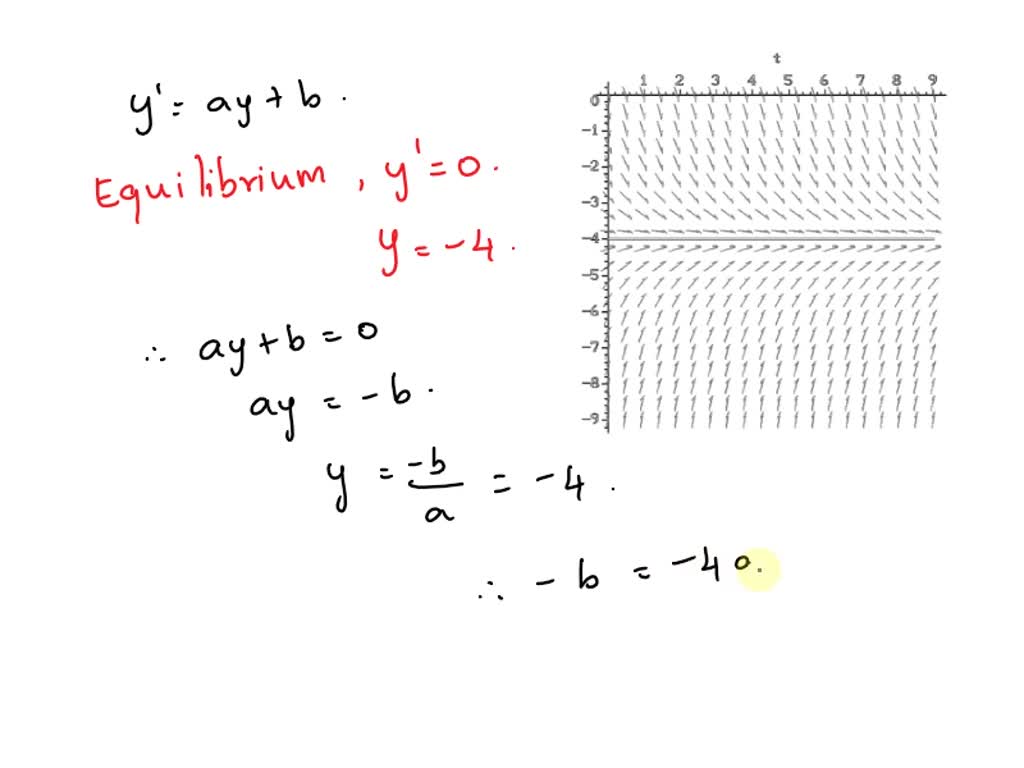 y' = ay + b.
Equilibrium, y' = 0.
y = -4.
∴ ay + b = 0
ay = -b.
y = -b/a = -4.
∴ -b = -4a
t
1 2 3 4 5 6 7 8 9
0
-1
-2
-3
-4
-5
-6
-7
-8
-9